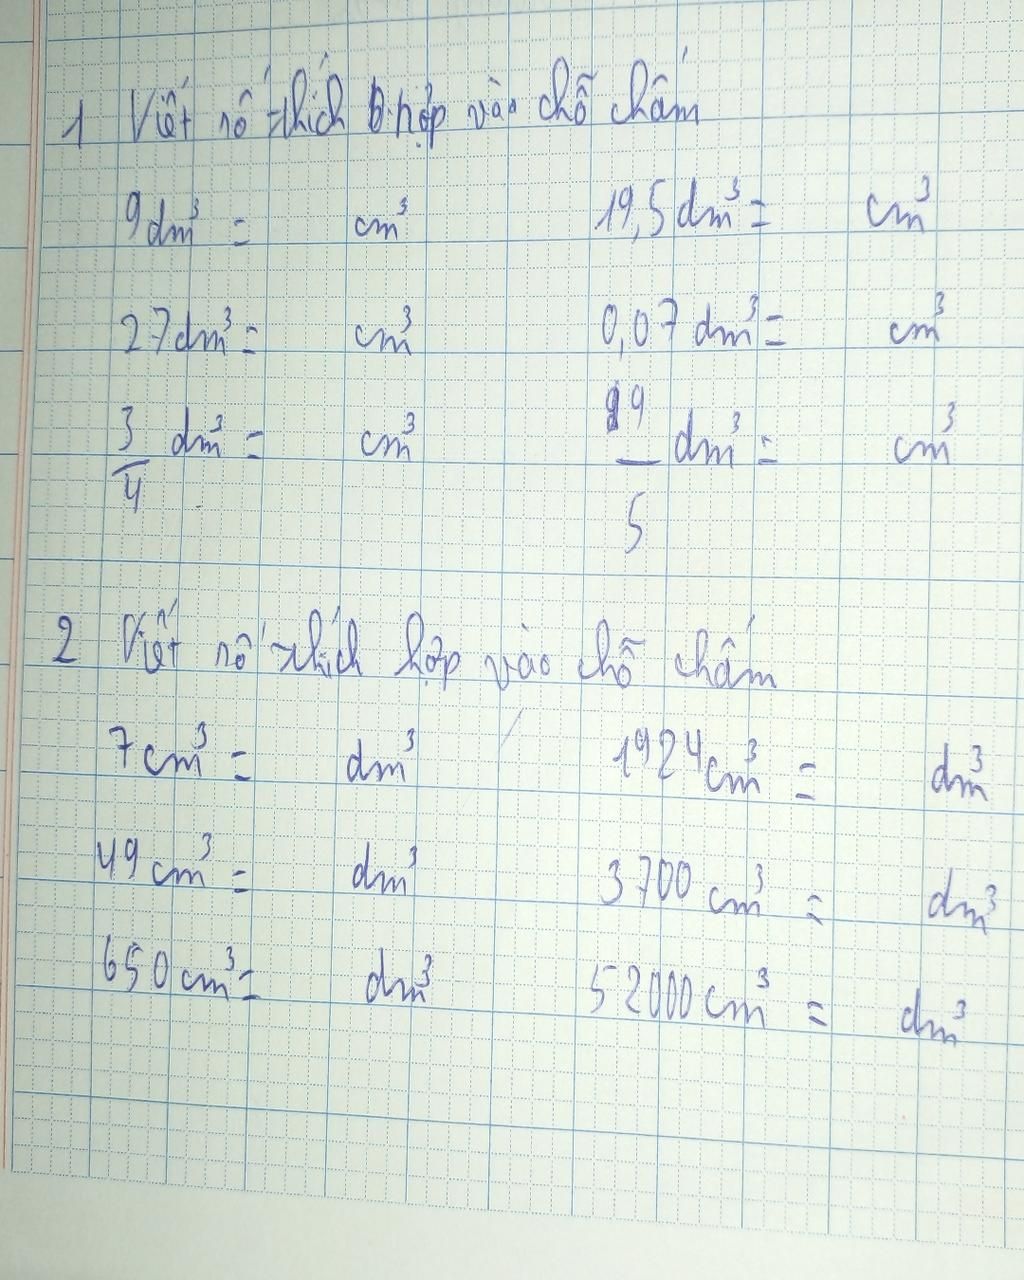 1 Viết số thích hợp vào chỗ chấm
9dm³ = cm³ 19,5dm³ = cm³
27dm³ = cm³ 0,07dm³ = cm³
3/4 dm³ = cm³ 99/5 dm³ = cm³
2 Viết số thích hợp vào chỗ chấm
7cm³ = dm³ 1924cm³ = dm³
49cm³ = dm³ 3700cm³ = dm³
650cm³ = dm³ 52000cm³ = dm³